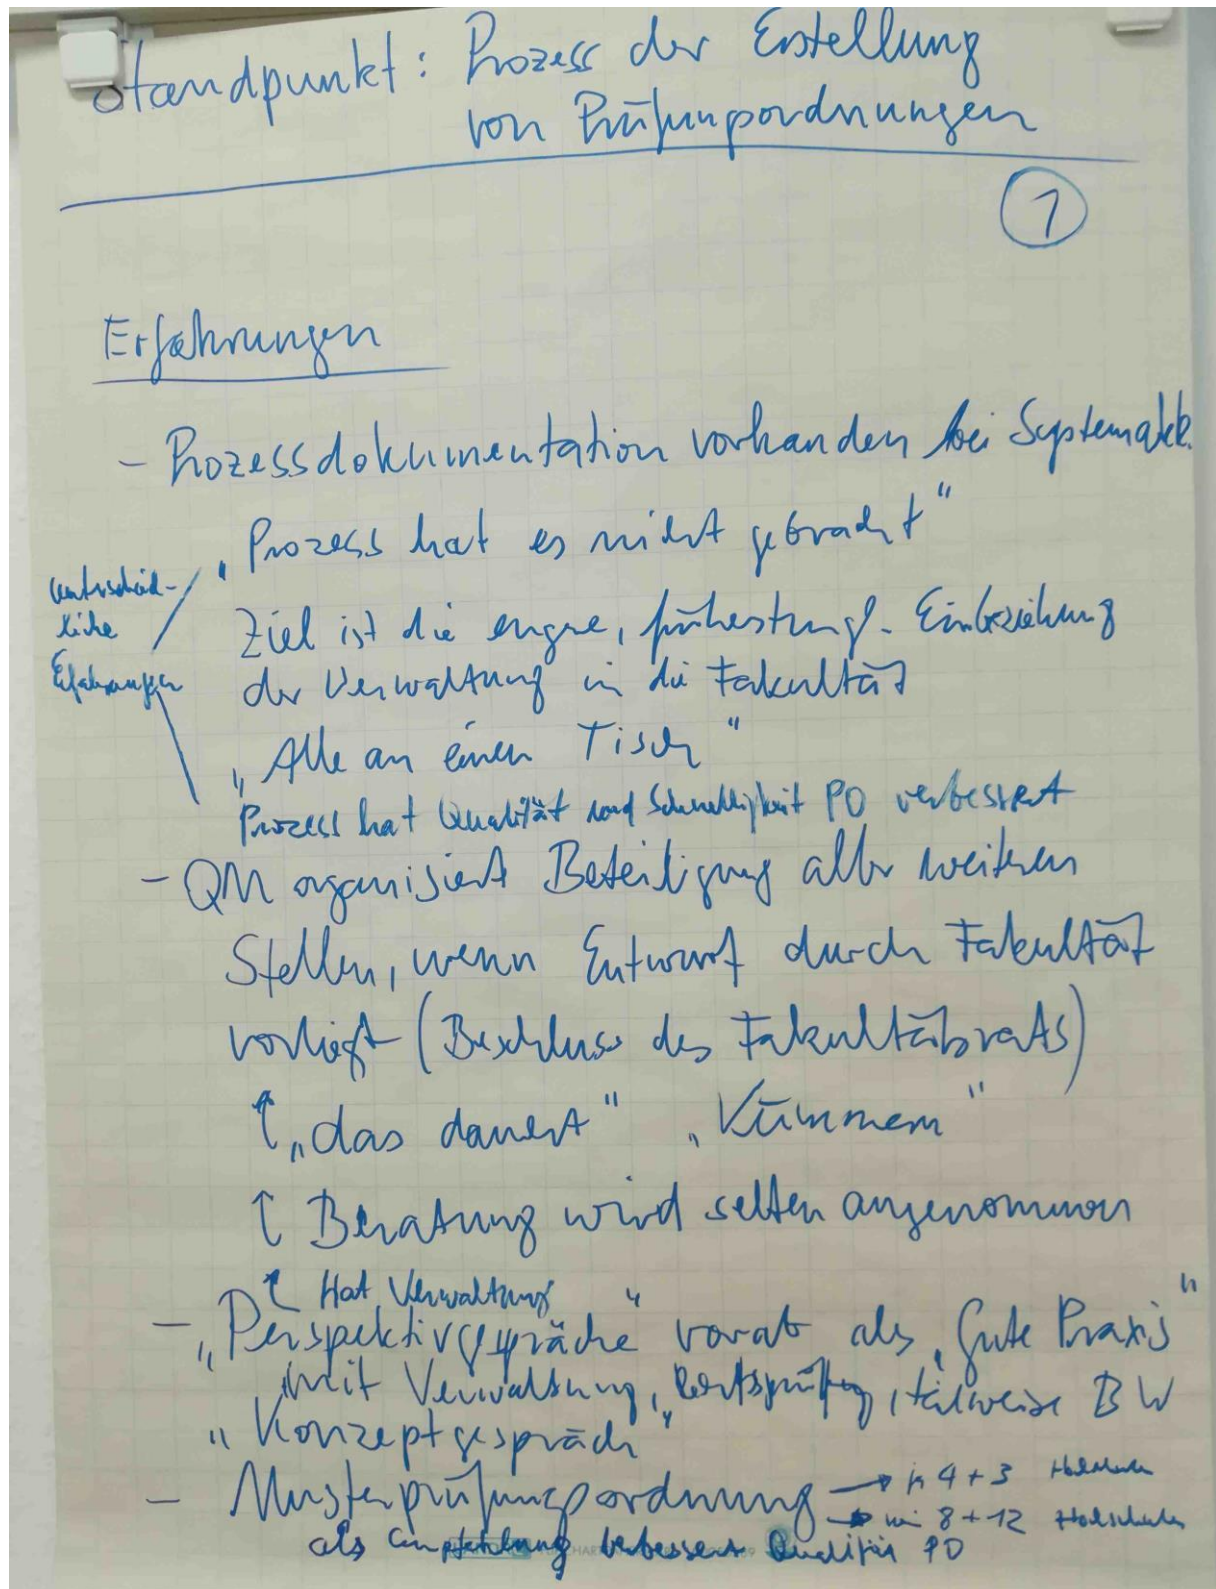 Standpunkt: Prozess der Erstellung
von Prüfungsordnungen
1
Erfahrungen
- Prozessdokumentation vorhanden bei Systemakk.
„Prozess hat es nicht gebracht“
Unterschied-
liche
Erfahrungen
Ziel ist die enge, frühestmögl. Einbeziehung
der Verwaltung in die Fakultät
„Alle an einen Tisch“
Prozess hat Qualität und Schnelligkeit PO verbessert
- QM organisiert Beteiligung aller weiteren
Stellen, wenn Entwurf durch Fakultät
vorliegt (Beschluss des Fakultätsrats)
↑ „das dauert“ „Kümmern“
↑ Beratung wird selten angenommen
↑ Hat Verwaltung
- „Perspektivgespräche“ vorab als „Gute Praxis“
mit Verwaltung, Rechtsprüfung, teilweise BW
„Konzeptgespräch“
- Musterprüfungsordnung → in 4 + 3
→ 8 + 12 Hochschulen
als Empfehlung verbessert Qualität PO